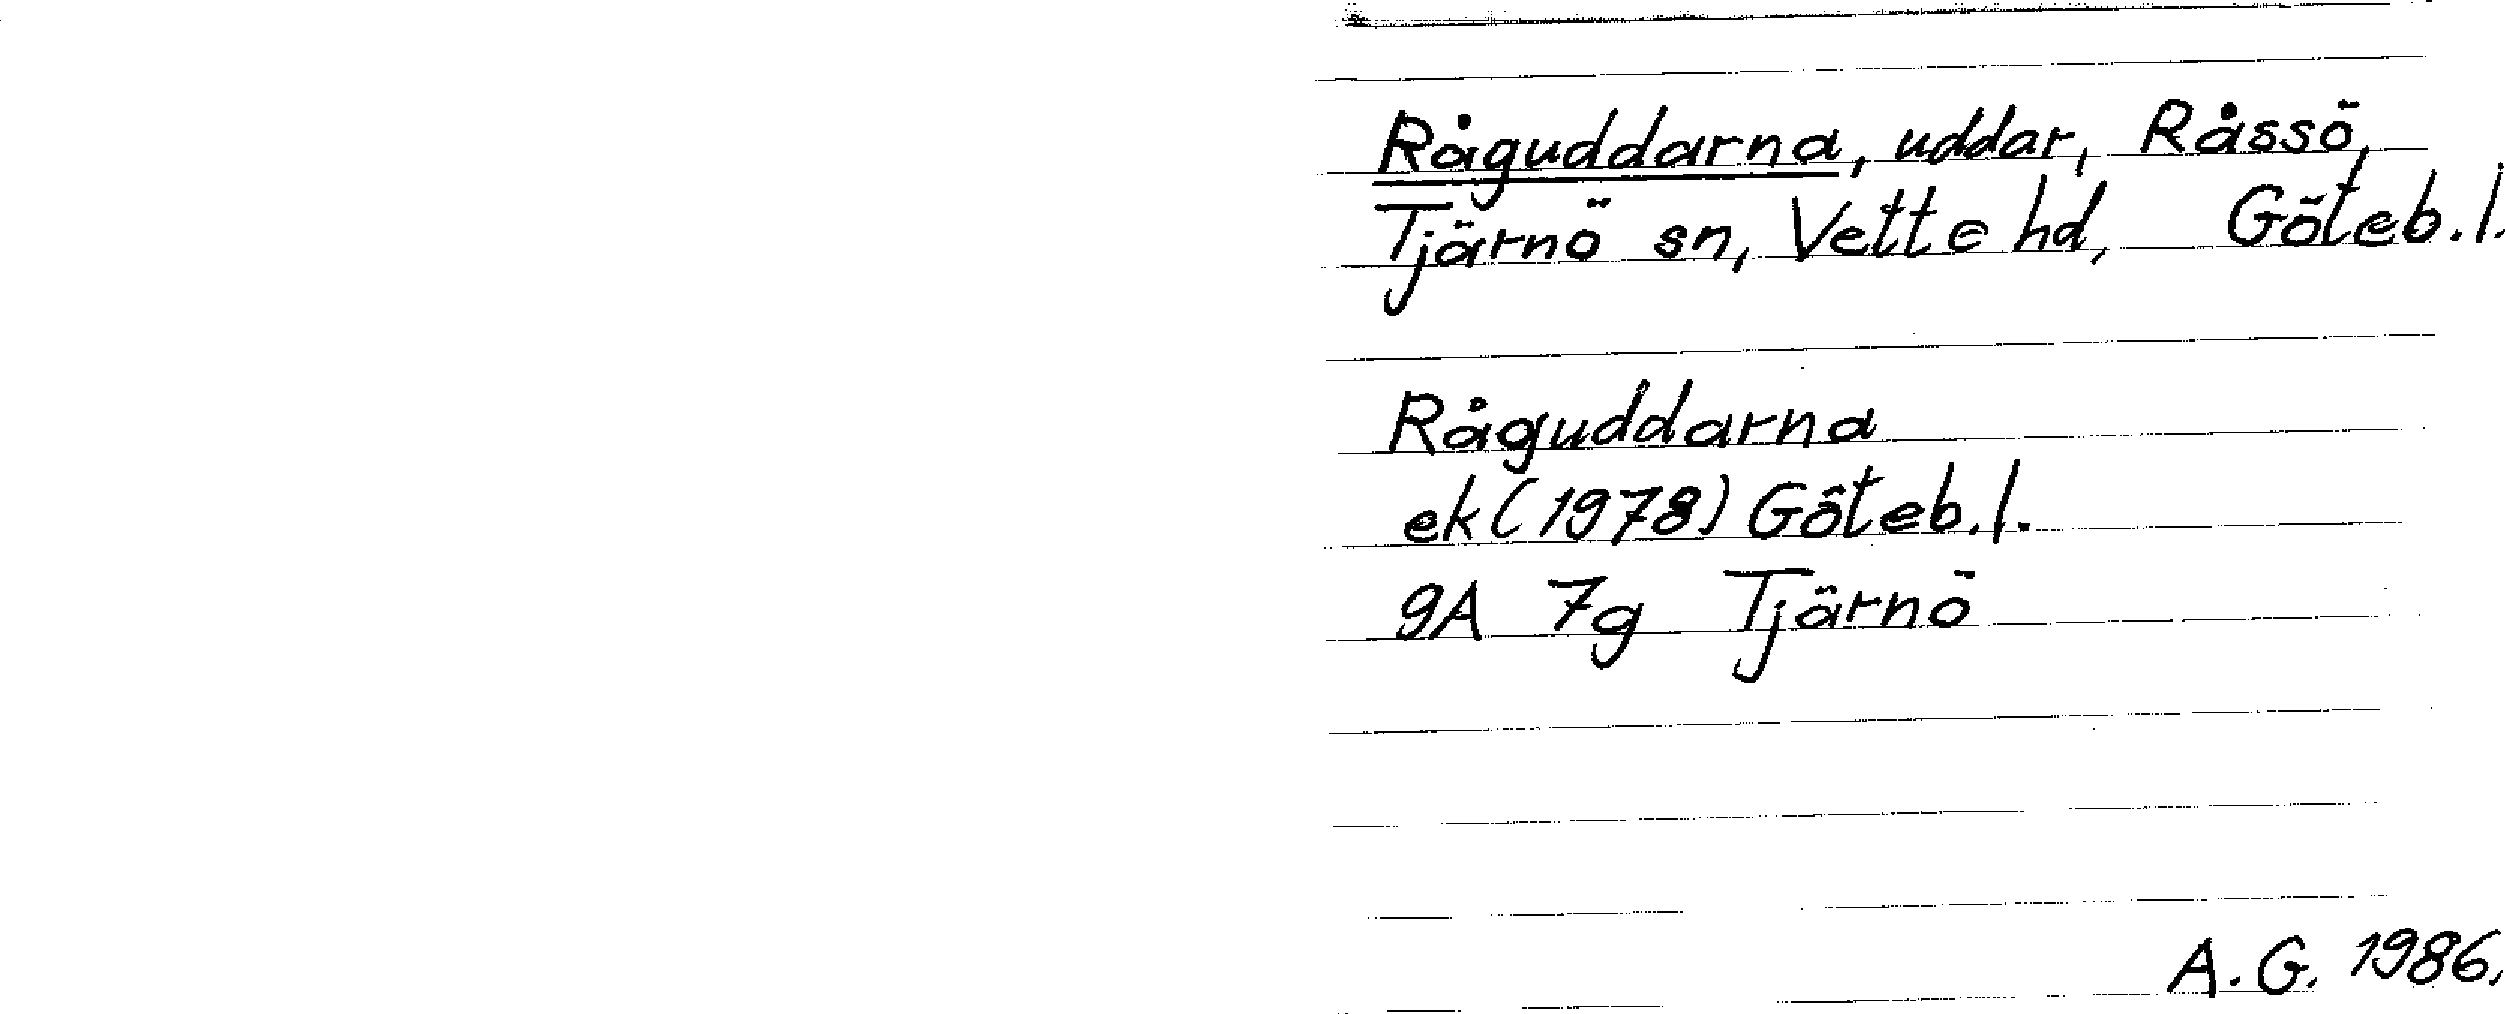 Råguddarna, uddar, Råssö,
Tjärnö sn, Vette hd, Göteb. l.
Råguddarna
ek (1978) Göteb. l.
9A 7g Tjärnö
A. G. 1986.